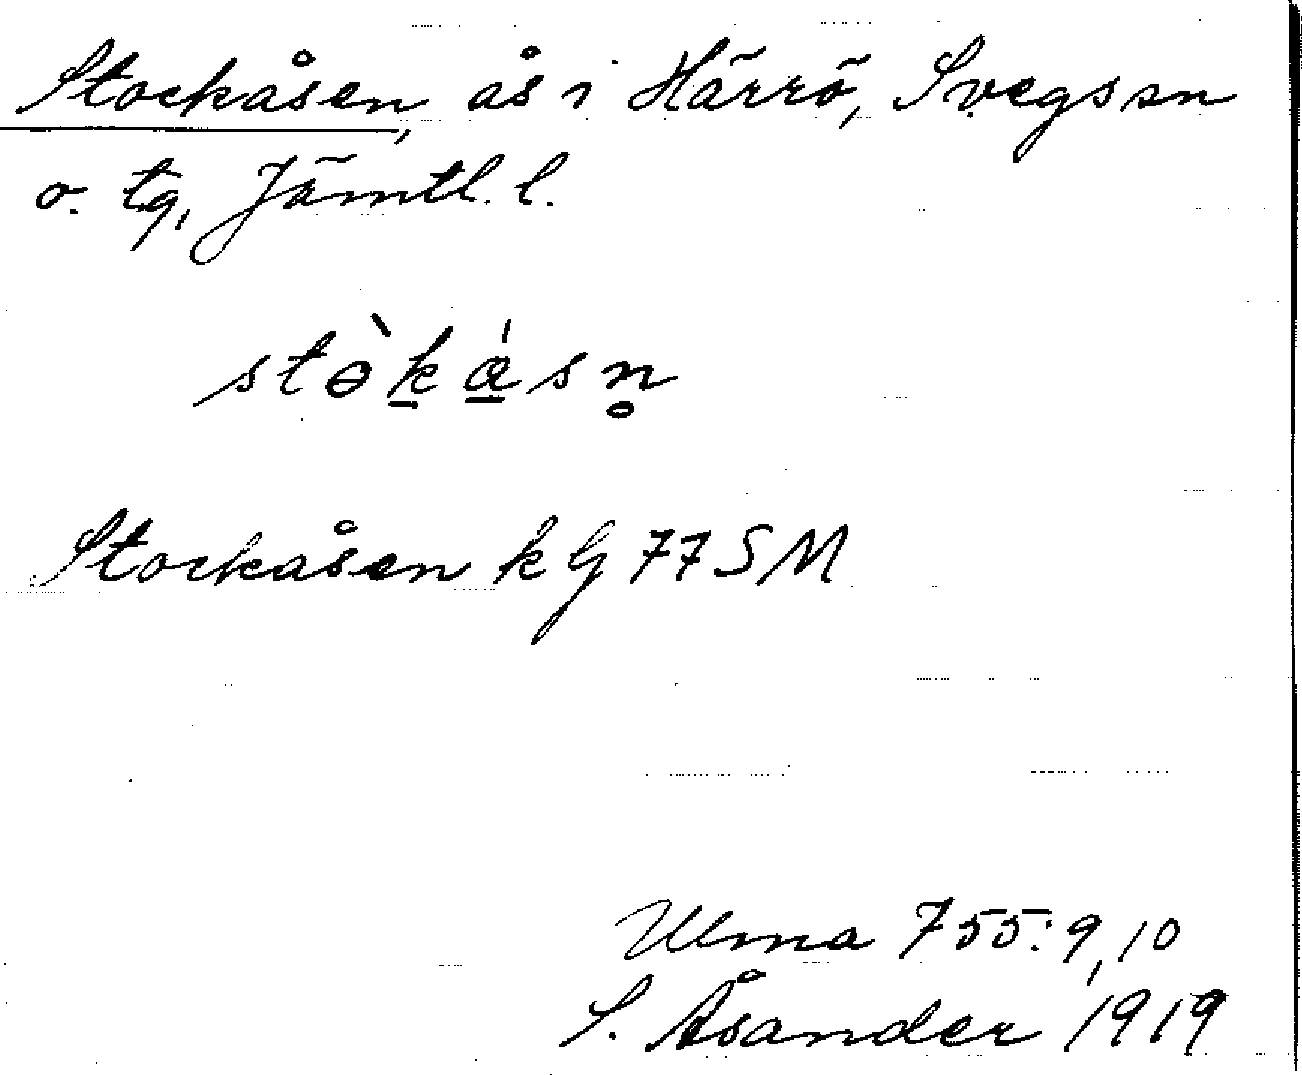 Stockåsen, ås i Härrö, Svegs sn
o. tg, Jämtl. l.
stə̀k̠á̠sn̥
Stockåsen k G 77 SM
Ulma 755: 9, 10
S. Åsander 1919